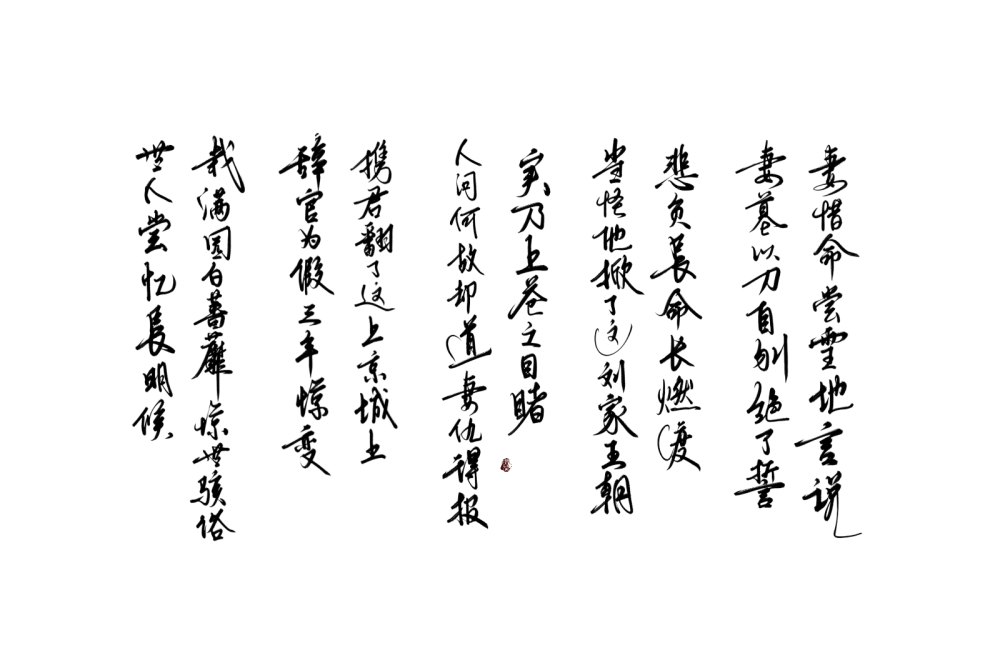 妻惜命尝雪地言说
妻墓以刀自刎绝了誓
悲负長命长燃渡
当怪地掀了这刘家王朝
实乃上苍之目睹
人问何故却道妻仇得报
携君翻了这上京城上
辞官为假三年惊变
栽满园白蔷蘼惊世骇俗
世人尝忆長明候